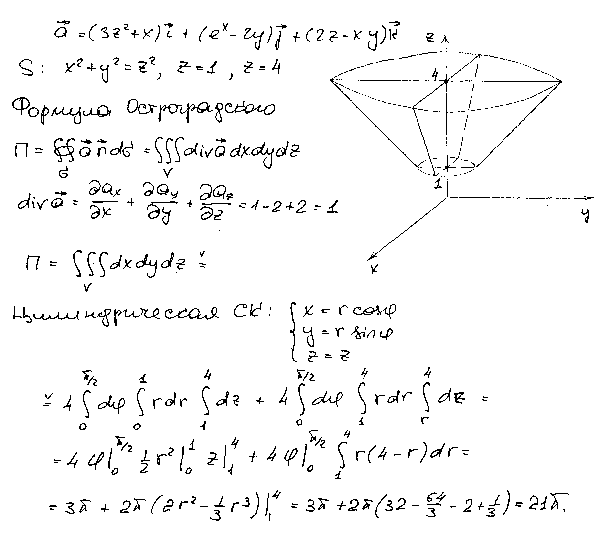 a⃗ = (3z²+x)i⃗ + (eˣ-2y)j⃗ + (2z-xy)k⃗
S: x²+y²=z², z=1, z=4
Формула Остроградского
П = ∯_σ a⃗ n⃗ dσ = ∭_V div a⃗ dxdydz
div a⃗ = ∂aₓ/∂x + ∂a_y/∂y + ∂a_z/∂z = 1-2+2 = 1
П = ∭_V dxdydz =
Цилиндрическая СК: { x = r cosφ
y = r sinφ
z = z
= 4 ∫₀^{π/2} dφ ∫₀^1 rdr ∫₁^4 dz + 4 ∫₀^{π/2} dφ ∫₁^4 rdr ∫_r^4 dz =
= 4 φ|₀^{π/2} ½ r²|₀^1 z|₁^4 + 4φ|₀^{π/2} ∫₁^4 r(4-r)dr =
= 3π + 2π(2r² - ⅓r³)|₁^4 = 3π + 2π(32 - 64/3 - 2 + ⅓) = 21π.
z
4
1
y
x